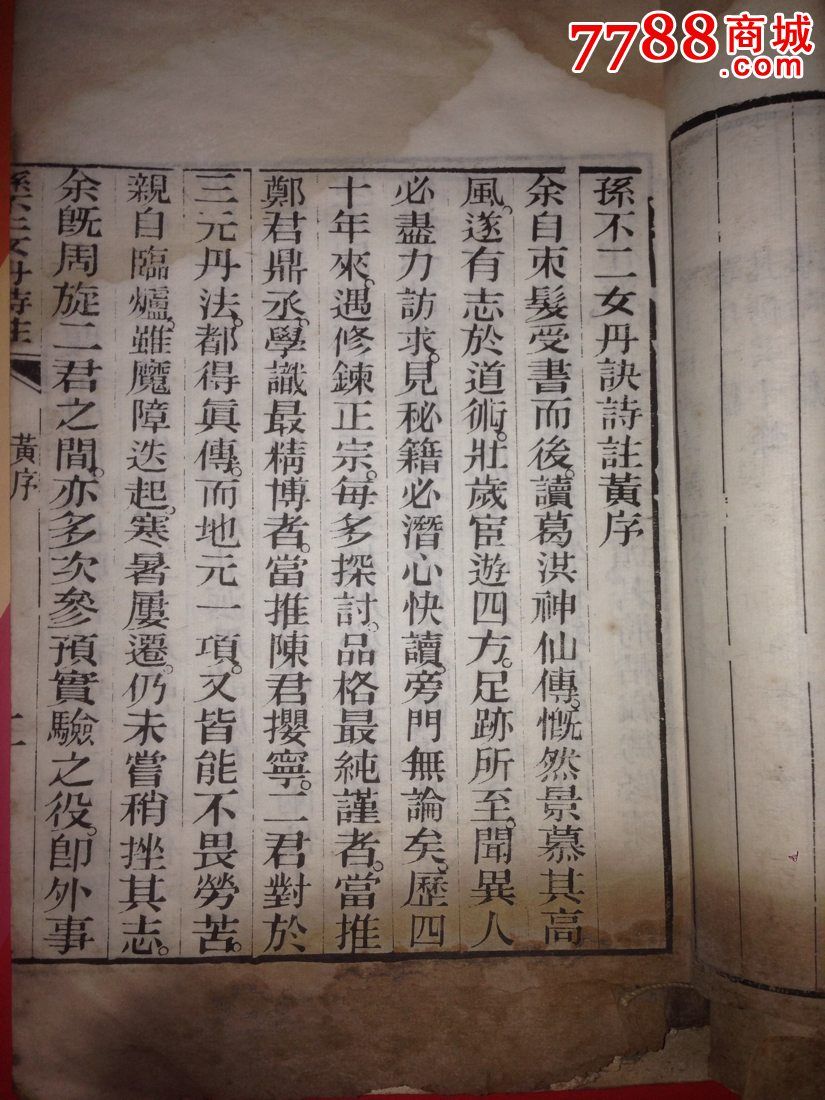 7788商城
.com
孫不二女丹訣詩註黃序
余自束髮受書而後。讀葛洪神仙傳。慨然景慕其高
風。遂有志於道術。壯歲宦遊四方。足跡所至。聞異人
必盡力訪求。見秘籍必潛心快讀。旁門無論矣。歷四
十年來。遇修鍊正宗。每多探討。品格最純謹者。當推
鄭君鼎丞。學識最精博者。當推陳君攖寧。二君對於
三元丹法。都得眞傳。而地元一項。又皆能不畏勞苦。
親自臨爐。雖魔障迭起。寒暑屢遷。仍未嘗稍挫其志。
余旣周旋二君之間。亦多次參預實驗之役。卽外事
孫不二女丹詩註
黃序